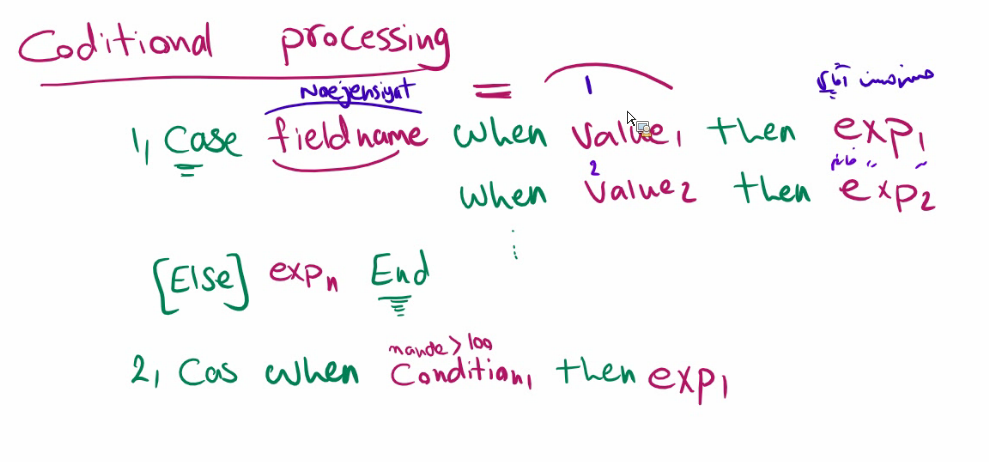 Coditional processing
Noejensiyat = 1 آقای
1, Case fieldname when value1 then exp1
2 خانم " "
when value2 then exp2
[Else] expn End
mande > 100
2, Cas when Condition1 then exp1